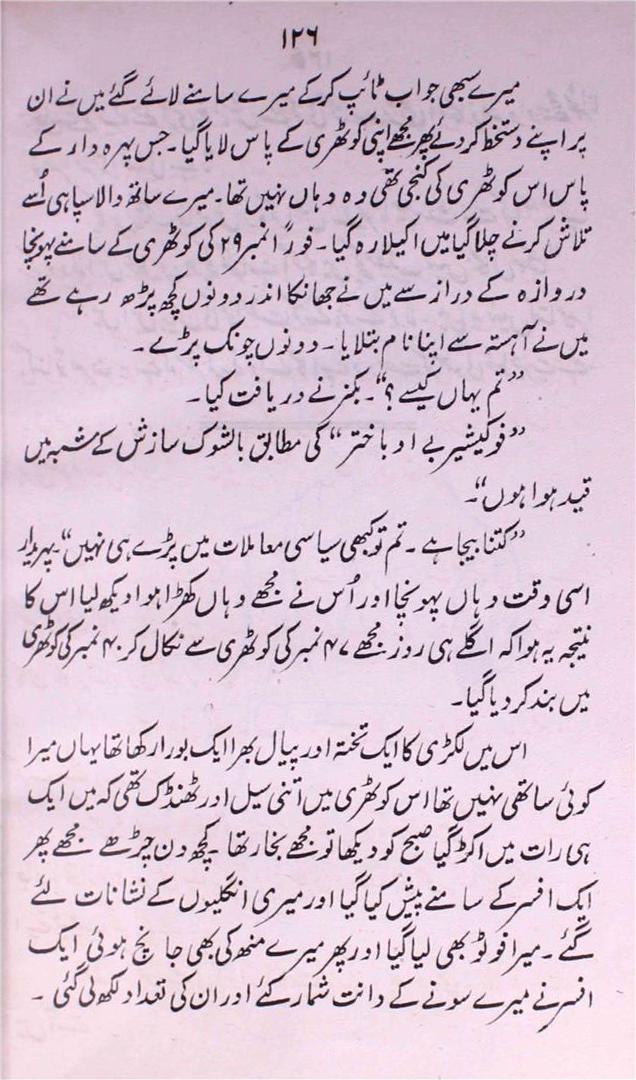 ۱۲۶
میرے سبھی جواب ٹائپ کرکے میرے سامنے لائے گئے میں نے ان
پر اپنے دستخط کر دئے پھر مجھے اپنی کوٹھری کے پاس لایا گیا۔ جس پہرہ دار کے
پاس اس کوٹھری کی کنجی تھی وہ وہاں نہیں تھا۔ میرے ساتھ والا سپاہی اُسے
تلاش کرنے چلا گیا میں اکیلا رہ گیا۔ فوراً نمبر ۲۹ کی کوٹھری کے سامنے پہونچا
دروازہ کے دراز سے میں نے جھانکا اندر دونوں کچھ پڑھ رہے تھے
میں نے آہستہ سے اپنا نام بتلایا۔ دونوں چونک پڑے۔
”تم یہاں کیسے؟“۔ بکنز نے دریافت کیا۔
”فوکیشیر بے اوباختر“ کی مطابق بالشوک سازش کے شبہ میں
قید ہوا ہوں“۔
”کتنا بیجا ہے۔ تم تو کبھی سیاسی معاملات میں پڑے ہی نہیں“ پہریدار
اسی وقت وہاں پہونچا اور اُس نے مجھے وہاں کھڑا ہوا دیکھ لیا اس کا
نتیجہ یہ ہوا کہ اگلے ہی روز مجھے ۴۷ نمبر کی کوٹھری سے نکال کر ۴۰ نمبر کی کوٹھری
میں بند کر دیا گیا۔
اس میں لکڑی کا ایک تختہ اور پیال بھرا ایک بورا رکھا تھا یہاں میرا
کوئی ساتھی نہیں تھا اس کوٹھری میں اتنی سیل اور ٹھنڈک تھی کہ میں ایک
ہی رات میں اکڑ گیا صبح کو دیکھا تو مجھے بخار تھا۔ کچھ دن چڑھے مجھے پھر
ایک افسر کے سامنے پیش کیا گیا اور میری انگلیوں کے نشانات لئے
گئے۔ میرا فوٹو بھی لیا گیا اور پھر میرے منھ کی بھی جانچ ہوئی ایک
افسر نے میرے سونے کے دانت شمار کئے اور ان کی تعداد لکھ لی گئی۔